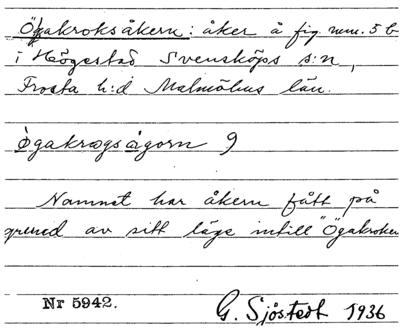 Ögakroksåkern: åker å fig. num. 5 b
i Högestad Svensköps s:n,
Frosta h:d Malmöhus län.
ögakrogsågorn 9
Namnet har åkern fått på
grund av sitt läge intill "Ögakroken
Nr 5942.
G. Sjöstedt 1936